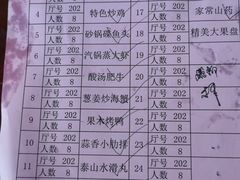 人数 8
4 厅号 202 人数 8 特色炒鸡 17 厅号 202 人数 8 家常山药
5 厅号 202 人数 8 砂锅碟鱼头 18 厅号 202 人数 8 精美大果盘
6 厅号 202 人数 8 汽锅蒸大虾 19 厅号 202 人数 8
7 厅号 202 人数 8 酸汤肥牛 20 厅号 202 人数 8
8 厅号 202 人数 8 葱姜炒海蟹 21 厅号 202 人数 8
9 厅号 202 人数 8 果木烤鸭 22 厅号 202 人数 8
10 厅号 202 人数 8 蒜香小肋排 23 厅号 202 人数 8
11 厅号 202 人数 8 泰山水滑丸 24 厅号 202 人数 8